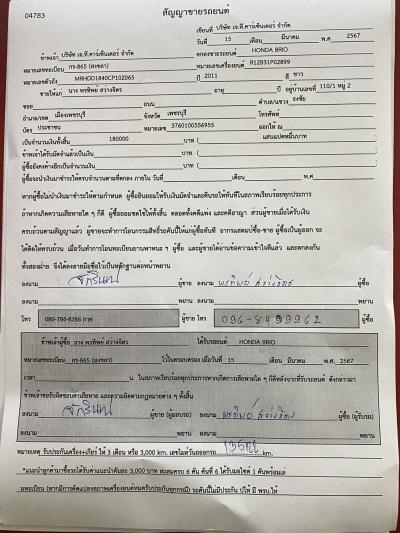 04783
สัญญาขายรถยนต์
เขียนที่ บริษัท เจ.ที.คาร์เซ็นเตอร์ จำกัด
วันที่ 15 เดือน มีนาคม พ.ศ. 2567
ข้าพเจ้า บริษัท เจ.ที.คาร์เซ็นเตอร์ จำกัด ตกลงขายรถยนต์ HONDA BRIO
หมายเลขทะเบียน กร-865 (สงขลา) หมายเลขเครื่องยนต์ R12B31P02899
หมายเลขตัวถัง MRHDD1840CP102065 ปี 2011 สี ขาว
ขายให้แก่ นาง พรทิพย์ สว่างจิตร อายุ ปี อยู่บ้านเลขที่ 110/1 หมู่ 2
ซอย ถนน ตำบล/แขวง ธงชัย
อำเภอ/เขต เมืองเพชรบุรี จังหวัด เพชรบุรี โทรศัพท์
บัตร ประชาชน หมายเลข 3760100556955 ออกให้ ณ
เป็นจำนวนเงินทั้งสิ้น 180000 บาท ( แสนแปดหมื่นบาท
ข้าพเจ้าได้รับมัดจำแล้วเป็นเงิน บาท (
ผู้ซื้อยังคงค้างอีกเป็นจำนวนเงิน บาท (
ผู้ซื้อจะนำเงินมาชำระให้ครบจำนวนตามที่ตกลง ภายใน วันที่ เดือน พ.ศ.
หากผู้ซื้อไม่นำเงินมาชำระให้ตามกำหนด ผู้ซื้อยินยอมให้ริบเงินมัดจำและคืนรถให้ทันทีในสภาพเรียบร้อยทุกประการ
ถ้าหากเกิดความเสียหายใด ๆ ก็ดี ผู้ซื้อยอมชดใช้ให้ทั้งสิ้น ตลอดทั้งคดีแพ่ง และคดีอาญา ส่วนผู้ขายเมื่อได้รับเงิน
ครบถ้วนตามสัญญาแล้ว ผู้ขายจะทำการโอนกรรมสิทธิ์รถคันนี้ให้แก่ผู้ซื้อทันที อากรแสตมป์ซื้อ-ขาย ผู้ซื้อเป็นผู้ออก จะ
ได้ติดให้ครบถ้วน เมื่อวันทำการโอนทะเบียนยานพาหนะ ฯ ผู้ซื้อ และผู้ขายได้อ่านข้อความเข้าใจดีแล้ว และตกลงกัน
ทั้งสองฝ่าย จึงได้ลงลายมือชื่อไว้เป็นหลักฐานต่อหน้าพยาน
ลงนาม ผู้ขาย ลงนาม พรทิพย์ สว่างจิตร ผู้ซื้อ
ลงนาม พยาน ลงนาม พยาน
โทร 080-786-8286 ผู้ขาย โทร 096-8499962 ผู้ซื้อ
ข้าพเจ้าผู้ซื้อ นาง พรทิพย์ สว่างจิตร ได้รับรถยนต์ HONDA BRIO
หมายเลขทะเบียน กร-865 (สงขลา) ไว้ในครอบครอง เมื่อวันที่ 15 เดือน มีนาคม พ.ศ. 2567
เวลา น. ในสภาพเรียบร้อยทุกประการหากเกิดการเสียหายใด ๆ ก็ดีหลังจากที่รับรถยนต์ ดังกล่าวมา
ข้าพเจ้าขอรับผิดชอบความเสียหาย และความผิดตามกฎหมายต่าง ๆ ทั้งสิ้น
ลงนาม ผู้ขาย (ผู้มอบรถ) ลงนาม พรทิพย์ สว่างจิตร ผู้ซื้อ (ผู้รับรถ)
ลงนาม พยาน ลงนาม พยาน
หมายเหตุ รับประกันเครื่อง+เกียร์ ให้ 3 เดือน หรือ 3,000 km. เลขไมล์วันออกรถ km.
*แนะนำลูกค้ามาซื้อรถได้รับค่าแนะนำคันละ 3,000 บาท สะสมครบ 6 คัน คันที่ 6 ได้รับมอไซค์ 1 คันพร้อมเล่
มทะเบียน (หากมีการดัดแปลงสภาพเครื่องยนต์หมดรับประกันทุกกรณี) รถคันนี้ไม่มีประกัน